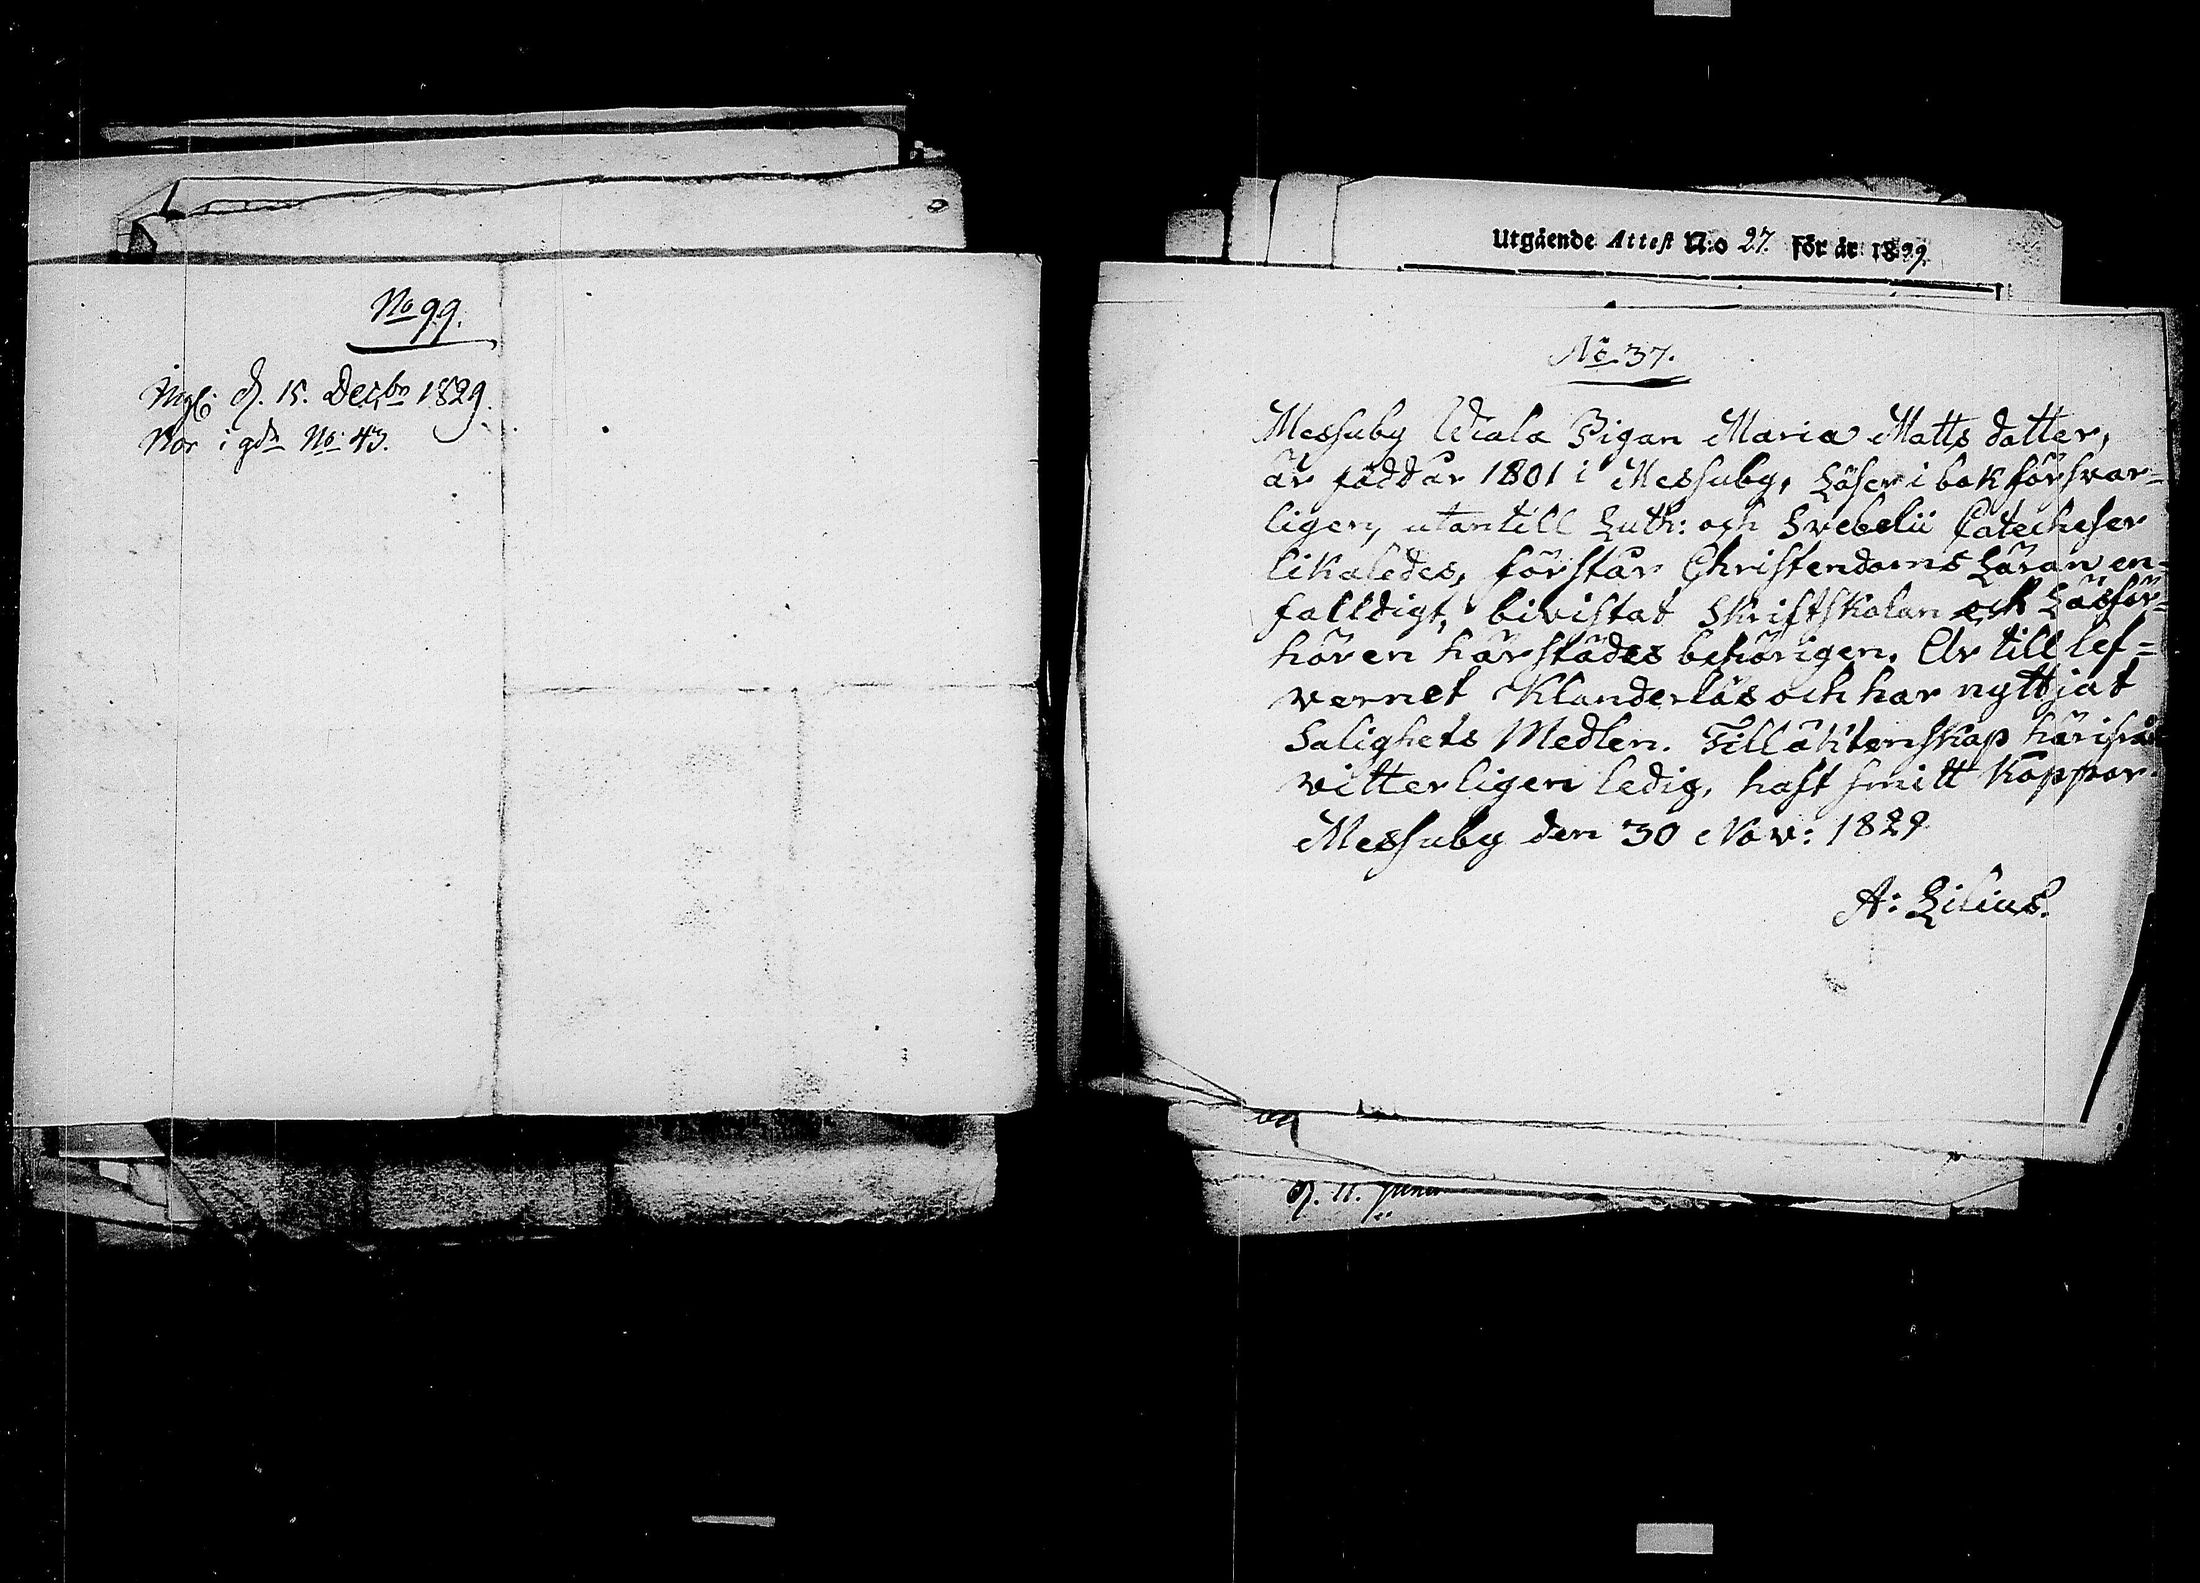 No 99.
d. 15. Decbr 1829.
No: 43.
Utgående Attest N:o 27. För år 1829.
No 37.
Messuby Wiala Pigan Maria Matts dotter,
är född år 1801 i Messuby, Läser i bok försvar=
ligen, utantill Luth: och Svebelii Catecheser
likaledes, förstår Christendoms Läran en=
falldigt, bivistat Skriftskolan och Läsför=
hören härstädes behörigen. Är till lef=
vernet Klanderlös och har nyttjat
Salighets Medlen. Till äktenskap härifrån
vitterligen ledig, haft smitt Koppor.
Messuby den 30 Nov: 1829
A: Lilius.
d. 11. Junii